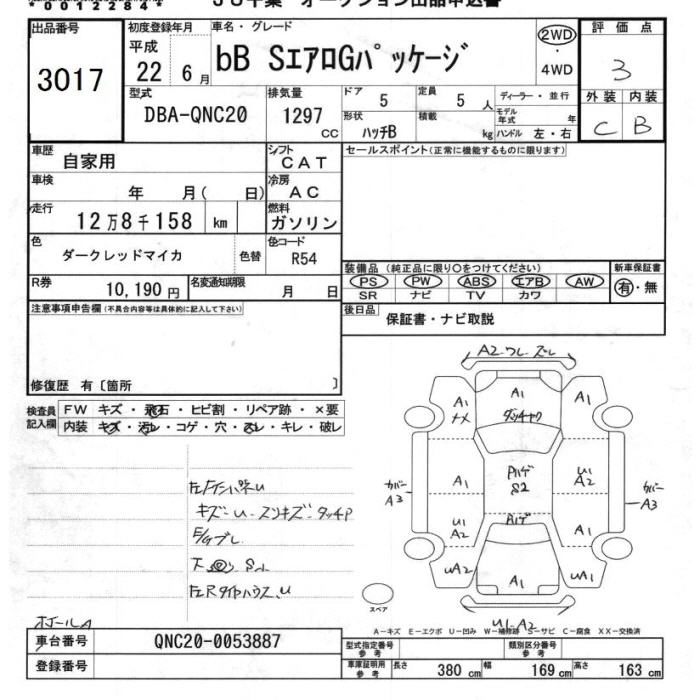 *00122 84*
JU千葉 オークション出品申込書
出品番号 初度登録年月 車名・グレード 2WD 評価点
3017 平成 22 6月 bB SエアロGパッケージ 4WD 3
型式 排気量 ドア 5 定員 5人 ディーラー・並行 外装 内装
DBA-QNC20 1297 CC 形状 ハッチB 積載 kg モデル年式 年 ハンドル 左・右 C B
車歴 自家用 シフト CAT セールスポイント(正常に機能するものに限ります)
車検 年 月( 日) 冷房 AC
走行 12万8千158 km 燃料 ガソリン
色 ダークレッドマイカ 色替 色コード R54
装備品(純正品に限り○をつけてください) 新車保証書
R券 10,190円 名変通知期限 月 日 PS PW ABS エアB AW 有・無
SR ナビ TV カワ
注意事項申告欄(不具合内容等は具体的に記入して下さい) 後日品 保証書・ナビ取説
修復歴 有〔箇所 〕
検査員記入欄 FW キズ・飛石・ヒビ割・リペア跡・×要
内装 キズ・汚レ・コゲ・穴・スレ・キレ・破レ
A2 ワレ ズレ
A1 A1 A1
A1 U1 A2
S2
カバー A3 カバー A3
U1 A2 A1
UA2 A1 UA1
U1 A2
スペア
A-キズ E-エクボ U-凹み W-補修跡 S-サビ C-腐食 XX-交換済
車台番号 QNC20-0053887 型式指定番号 参考 類別区分番号 参考
登録番号 車庫証明用 参考 長さ 380 cm 幅 169 cm 高さ 163 cm